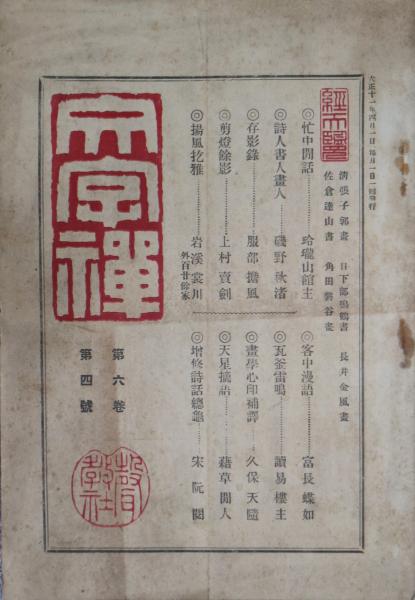 大正十一年四月一日 每月一日一回發行
經天翳
清張子郭畫 日下部鳴鶴書 長井金風畫
佐倉達山書 角田磐谷畫
◎忙中閒話…………玲瓏山館主
◎詩人書人畫人………磯野秋渚
◎存影錄…………服部擔風
◎剪燈餘影…………上村賣劍
◎揚風扢雅…………岩溪裳川
外百廿餘家
◎客中漫語…………富長蝶如
◎瓦釜雷鳴…………讀易樓主
◎畫學心印補譯………久保天隨
◎天星摘語…………藉草閒人
◎增修詩話總龜………宋 阮閱
文字禪
第六卷
第四號
聲教社